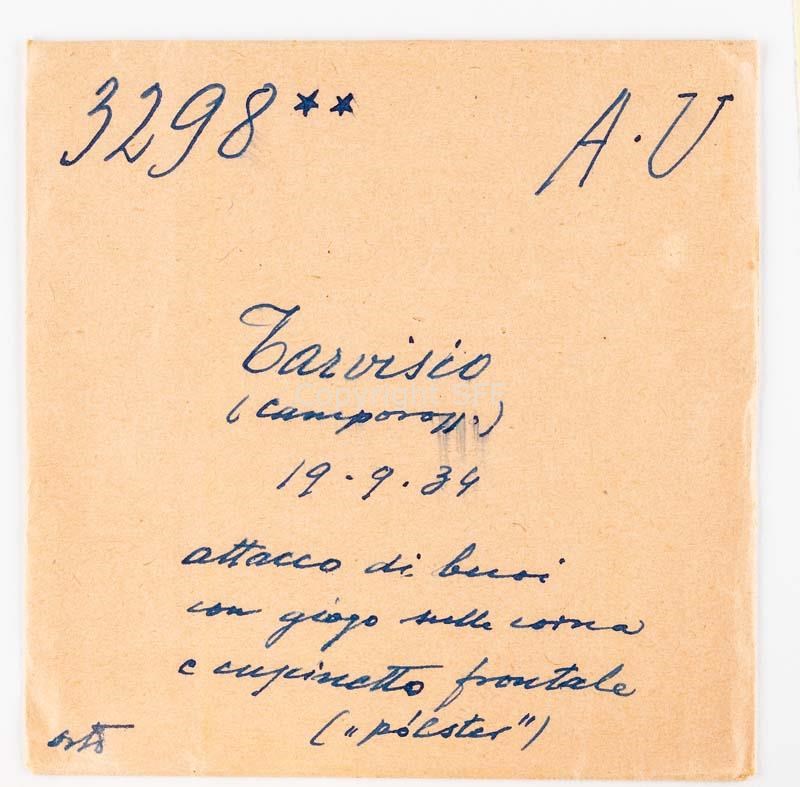 3298** A.U
Tarvisio
Copyright SFF
(Camporosso)
19.9.34
attacco di buoi
con giogo sulle corna
e cupinetto frontale
("pólster")
orto